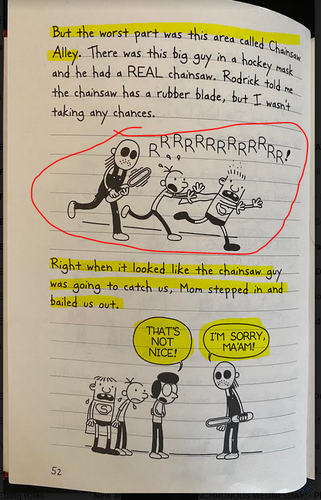 But the worst part was this area called Chainsaw
Alley. There was this big guy in a hockey mask
and he had a REAL chainsaw. Rodrick told me
the chainsaw has a rubber blade, but I wasn't
taking any chances.
RRRRRRRRRRRRR!
Right when it looked like the chainsaw guy
was going to catch us, Mom stepped in and
bailed us out.
THAT'S
NOT
NICE!
I'M SORRY,
MA'AM!
52